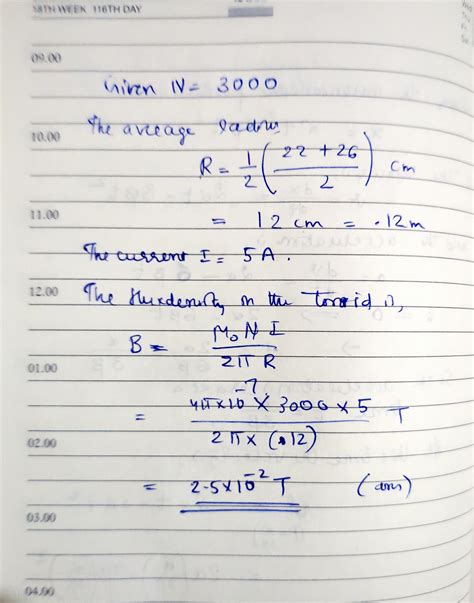 18TH WEEK 116TH DAY
09.00
Given N = 3000
The average radius
10.00
R = 1/2 (22 + 26 / 2) cm
11.00
= 12 cm = .12m
The current I = 5A.
12.00
The fluxdensity in the toroid is,
B = μ₀ N I / 2π R
01.00
= 4π×10⁻⁷ × 3000 × 5 / 2π× (.12) T
02.00
= 2.5×10⁻² T (ans)
03.00
04.00